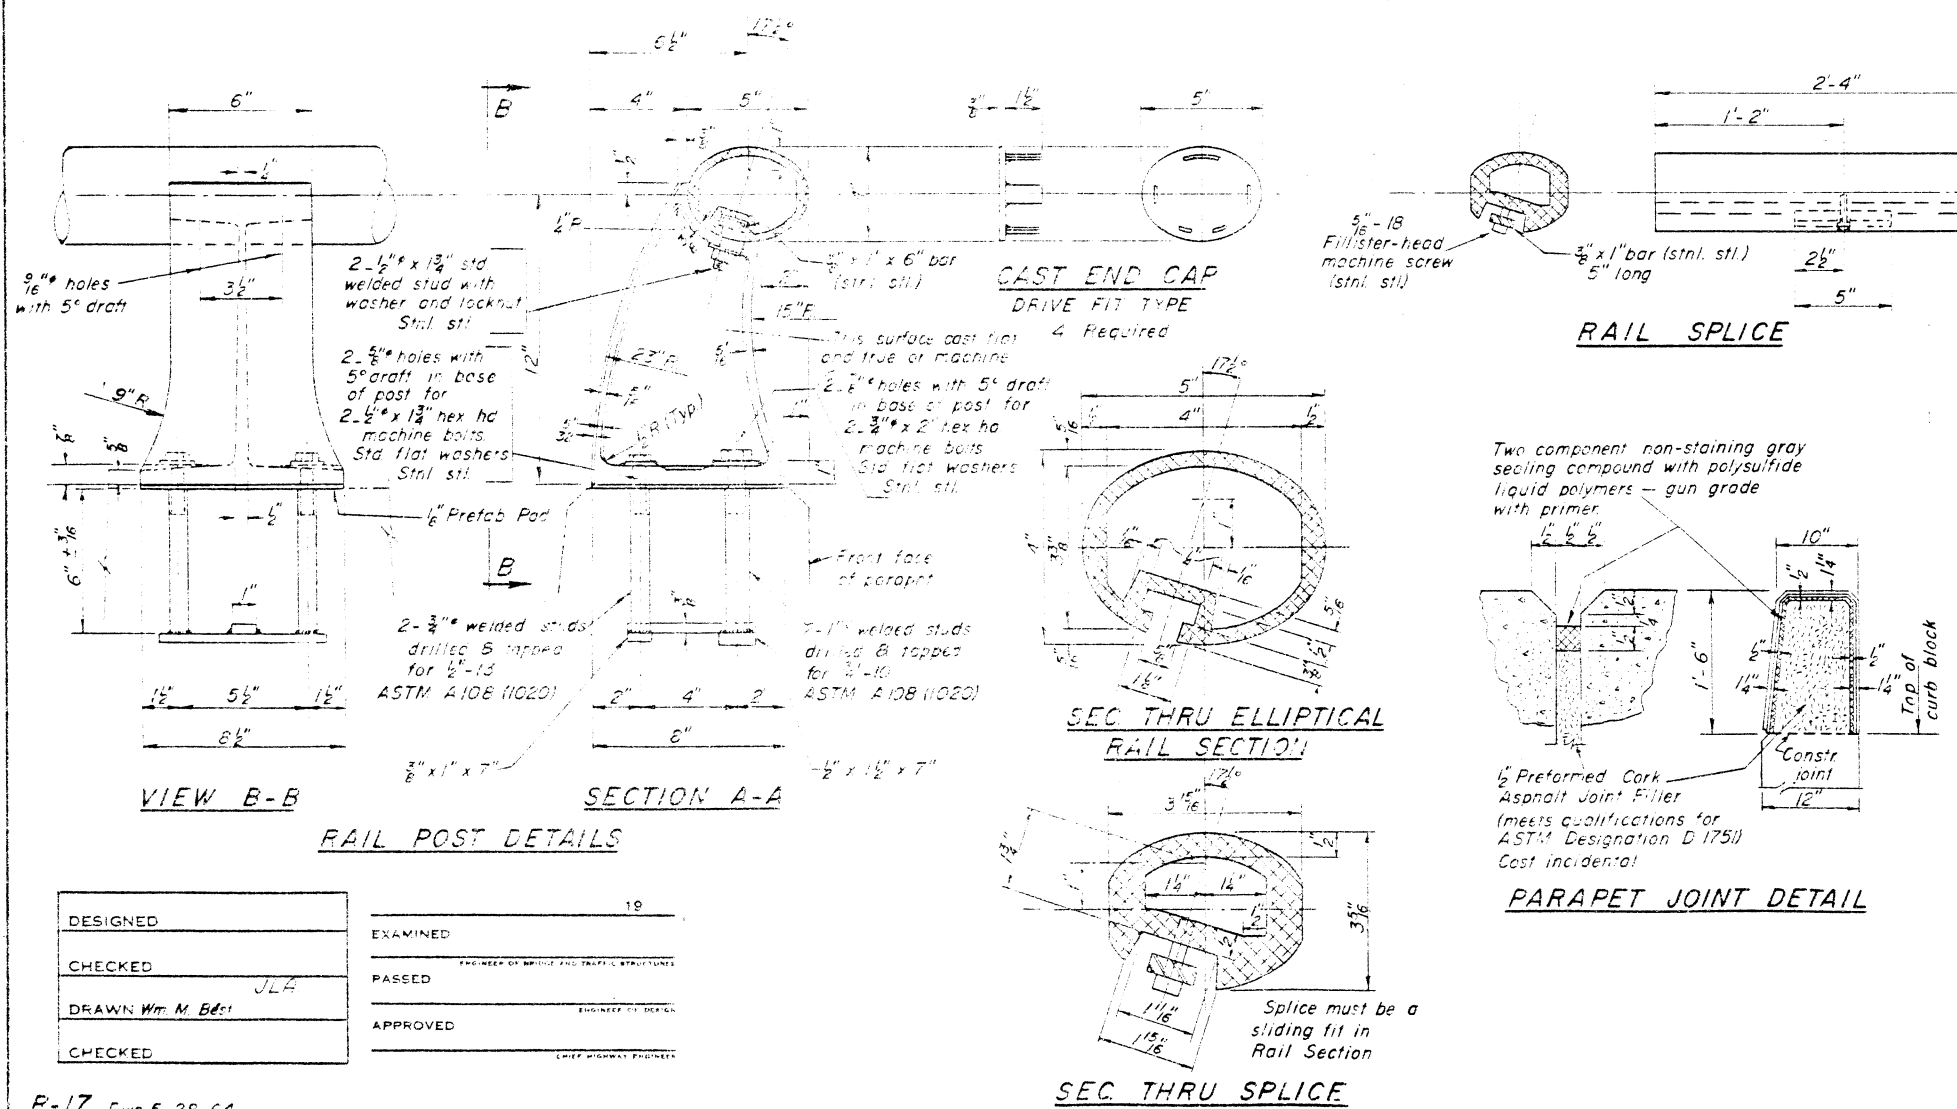 6"
1/4
9/16"ø holes
with 5° draft
3 1/2"
9"R
7/8
5/8
6" ± 3/16
1"
1/2"
1/8" Prefab Pad
1 1/2"
5 1/2"
1 1/2"
8 1/2"
VIEW B-B
B
B
6 1/2"
17 1/2°
4"
5"
1/4"R
2-1/2"ø x 1 3/4" std
welded stud with
washer and locknut
Stnl. stl.
2-5/8"ø holes with
5° draft in base
of post for
2-1/2"ø x 1 3/4" hex hd
machine bolts.
Std flat washers
Stnl. stl.
12"
23"R
15"R
5/16
5/32
(Typ.)
3/8" x 1" x 6" bar
(stnl. stl.)
This surface cast flat
and true or machine
2-7/8"ø holes with 5° draft
in base of post for
2-3/4"ø x 2" hex hd
machine bolts
Std flat washers
Stnl. stl.
Front face
of parapet
2-3/4"ø welded studs
drilled & tapped
for 1/2"-13
ASTM A108 (1020)
2-1" welded studs
drilled & tapped
for 3/4"-10
ASTM A108 (1020)
2"
4"
2"
8"
3/8" x 1" x 7"
1/2" x 1 1/2" x 7"
SECTION A-A
RAIL POST DETAILS
3/8"
1 1/2"
5"
CAST END CAP
DRIVE FIT TYPE
4 Required
17 1/2°
5"
4"
1/2"
5/16
4"
3 3/8"
1"
1/16
5/16
1/2"
3/8"
1 1/2"
SEC. THRU ELLIPTICAL
RAIL SECTION
17 1/2°
3 15/16"
1 3/4"
1"
1/2"
1 1/4"
1 1/4"
1/2"
1/2
3 5/16"
1 11/16"
1 15/16"
Splice must be a
sliding fit in
Rail Section
SEC. THRU SPLICE
2'-4"
1'-2"
5/16"-18
Fillister-head
machine screw
(stnl. stl.)
3/8" x 1" bar (stnl. stl.)
5" long
2 1/2"
5"
RAIL SPLICE
Two component non-staining gray
sealing compound with polysulfide
liquid polymers — gun grade
with primer.
1/2" 1/2" 1/2"
1/2"
1/4
1/2"
10"
1/2"
1 1/4"
1'-6"
1/2"
1/2"
1 1/4"
1 1/4"
Top of
curb block
Constr.
joint
12"
1/2" Preformed Cork
Asphalt Joint Filler
(meets qualifications for
ASTM Designation D 1751)
Cost incidental
PARAPET JOINT DETAIL
DESIGNED
CHECKED
JLA
DRAWN Wm. M. Best
CHECKED
19
EXAMINED
ENGINEER OF BRIDGE AND TRAFFIC STRUCTURES
PASSED
ENGINEER OF DESIGN
APPROVED
CHIEF HIGHWAY ENGINEER
R-17